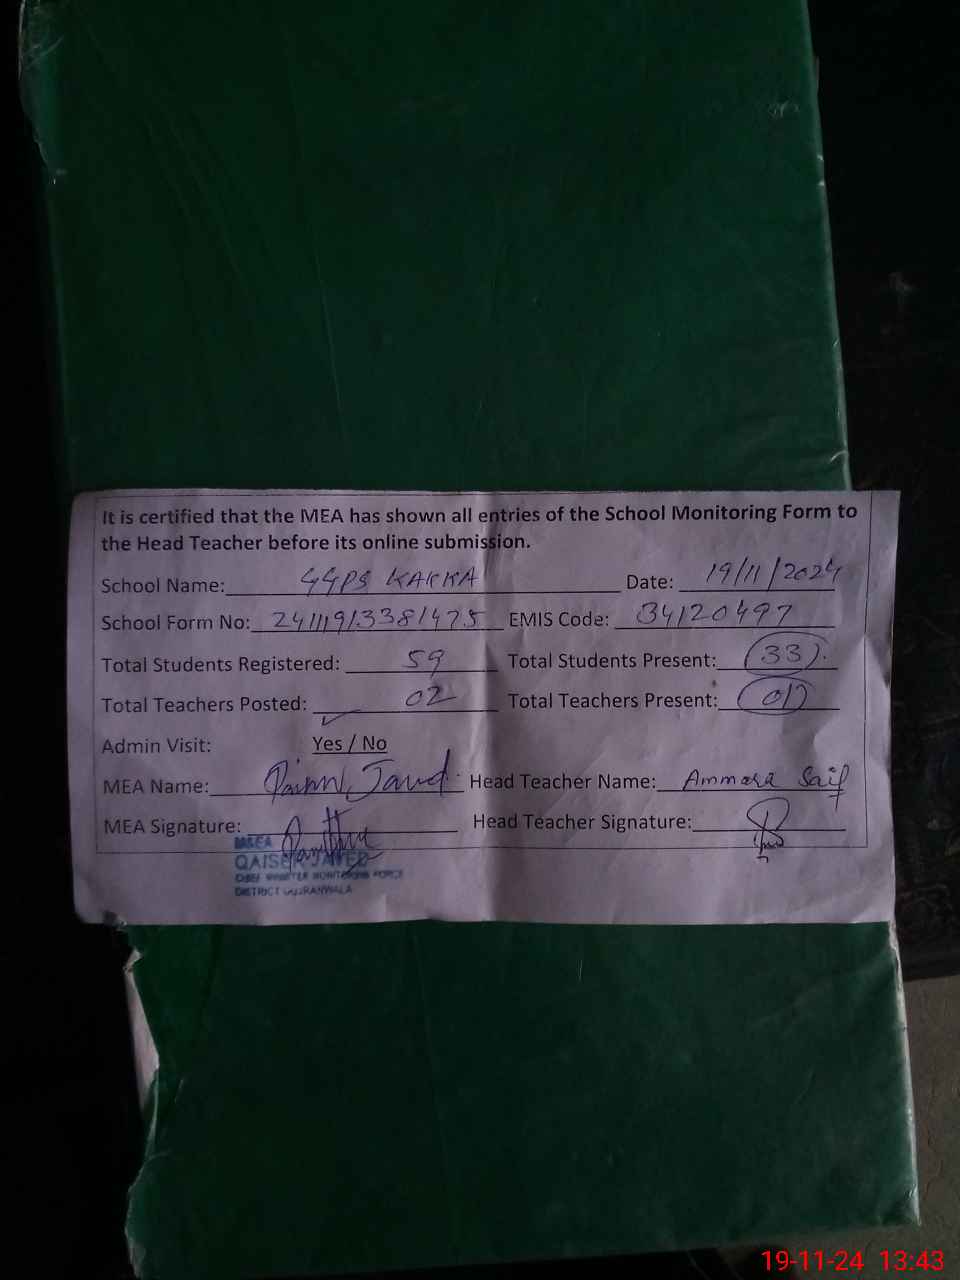 It is certified that the MEA has shown all entries of the School Monitoring Form to
the Head Teacher before its online submission.
School Name: GGPS KAKKA Date: 19/11/2024
School Form No: 24111913381475 EMIS Code: 34120497
Total Students Registered: 59 Total Students Present: 33
Total Teachers Posted: 02 Total Teachers Present: 01
Admin Visit: Yes / No
MEA Name: Head Teacher Name: Ammara Saif
MEA Signature: Head Teacher Signature:
M&EA
QAISER JAVED
CHIEF MINISTER MONITORING FORCE
DISTRICT GUJRANWALA
19-11-24 13:43